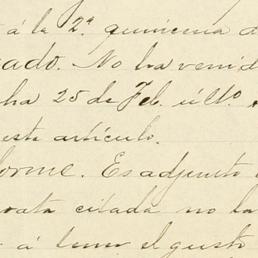 á la 2ª quincena d
cado. No ha venid
ha 25 de Feb. últº.
este artículo.
forme. Es adjunto
rata citada no ha
á tener el gusto